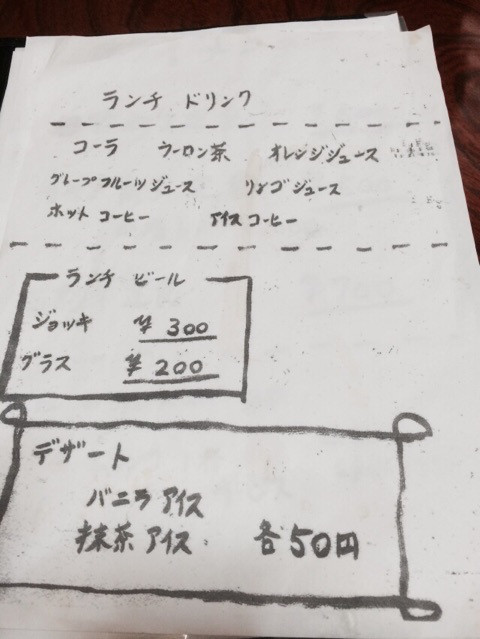 ランチ ドリンク
コーラ ウーロン茶 オレンジジュース
グレープフルーツジュース リンゴジュース
ホットコーヒー アイスコーヒー
ランチ ビール
ジョッキ ¥300
グラス ¥200
デザート
バニラアイス
抹茶アイス 各50円